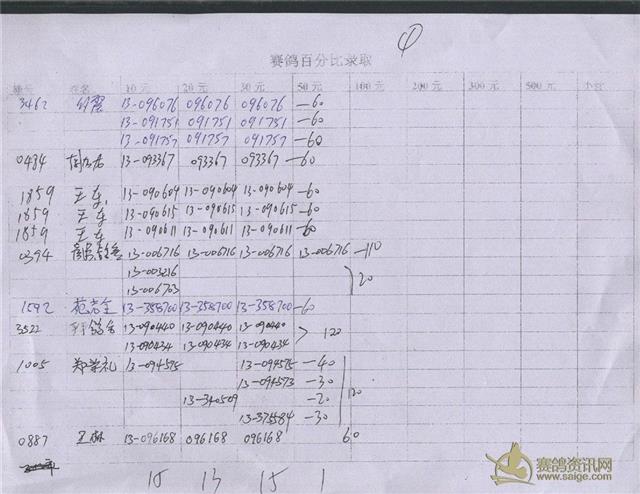 ④
赛鸽百分比录取
编号 姓名 10元 20元 30元 50元 100元 200元 300元 500元 小合
3462 13-096076 096076 096076 -60
13-091751 091751 091751 -60
13-091757 091757 091757 -60
0434 13-093367 093367 093367 -60
1859 王 13-090604 13-090604 13-090604 -60
1859 王 13-090615 13-090615 13-090615 -60
1859 王 13-090611 13-090611 13-090611 -60
0394 13-006716 13-006716 13-006716 13-006716 -110
13-003216
13-006703 20
1592 13-358700 13-358700 13-358700 -60
3522 13-090440 13-090440 13-090440
13-090434 13-090434 13-090434 120
1005 郑荣礼 13-094575 13-094575 -40
13-094573 -30
13-340509 -20 120
13-375584 -30
0887 王 13-096168 096168 096168 60
15 13 15 1
赛鸽资讯网
www.saige.com